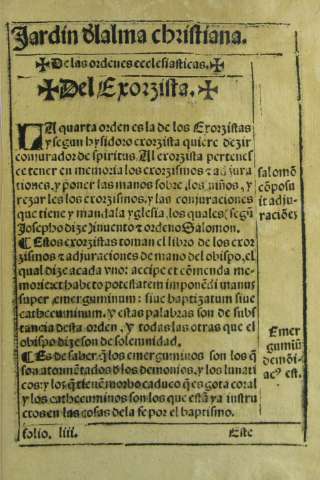 Jardin dl alma christiana.
✠ De las ordenes ecclesiasticas. ✠
✠ Del Exorzista. ✠
LA quarta orden es la de los Exorzistas
y segun hysidoro exorzista quiere dezir
conjurador de spiritus. Al exorzista pertenes
ce tener en memoria los exorzismos ⁊ adjura
tiones, y poner las manos sobre los niños, y
rezar les los exorzismos, y las conjuraciones
que tiene y manda la yglesia, los quales (segũ
Josepho dize) inuento ⁊ ordeno Salomon.
¶ Estos exorzistas toman el libro de los exor
zismos ⁊ adjuraciones de mano del obispo, el
qual dize a cada vno: accipe et cõmenda me-
morie: et habeto potestatem imponẽdi manus
super emerguminum: siue baptizatum siue
cathecuminum. y estas palabras son de subs
tancia desta orden, y todas las otras que el
obispo dize son de solemnidad.
¶ Es de saber q̃ los emerguminos son los q̃
son atormẽtados d̃ los demonios, y los lunati
cos: y los q̃ tienẽ morbo caduco que es gota coral
y los cathecuminos son los que estã ya instru
ctos en las cosas de la fe por el baptismo.
salomõ
cõposu
it adju
raciões
Emer
gumiñ
demõi-
acꝰ est.
folio. liii.
Este